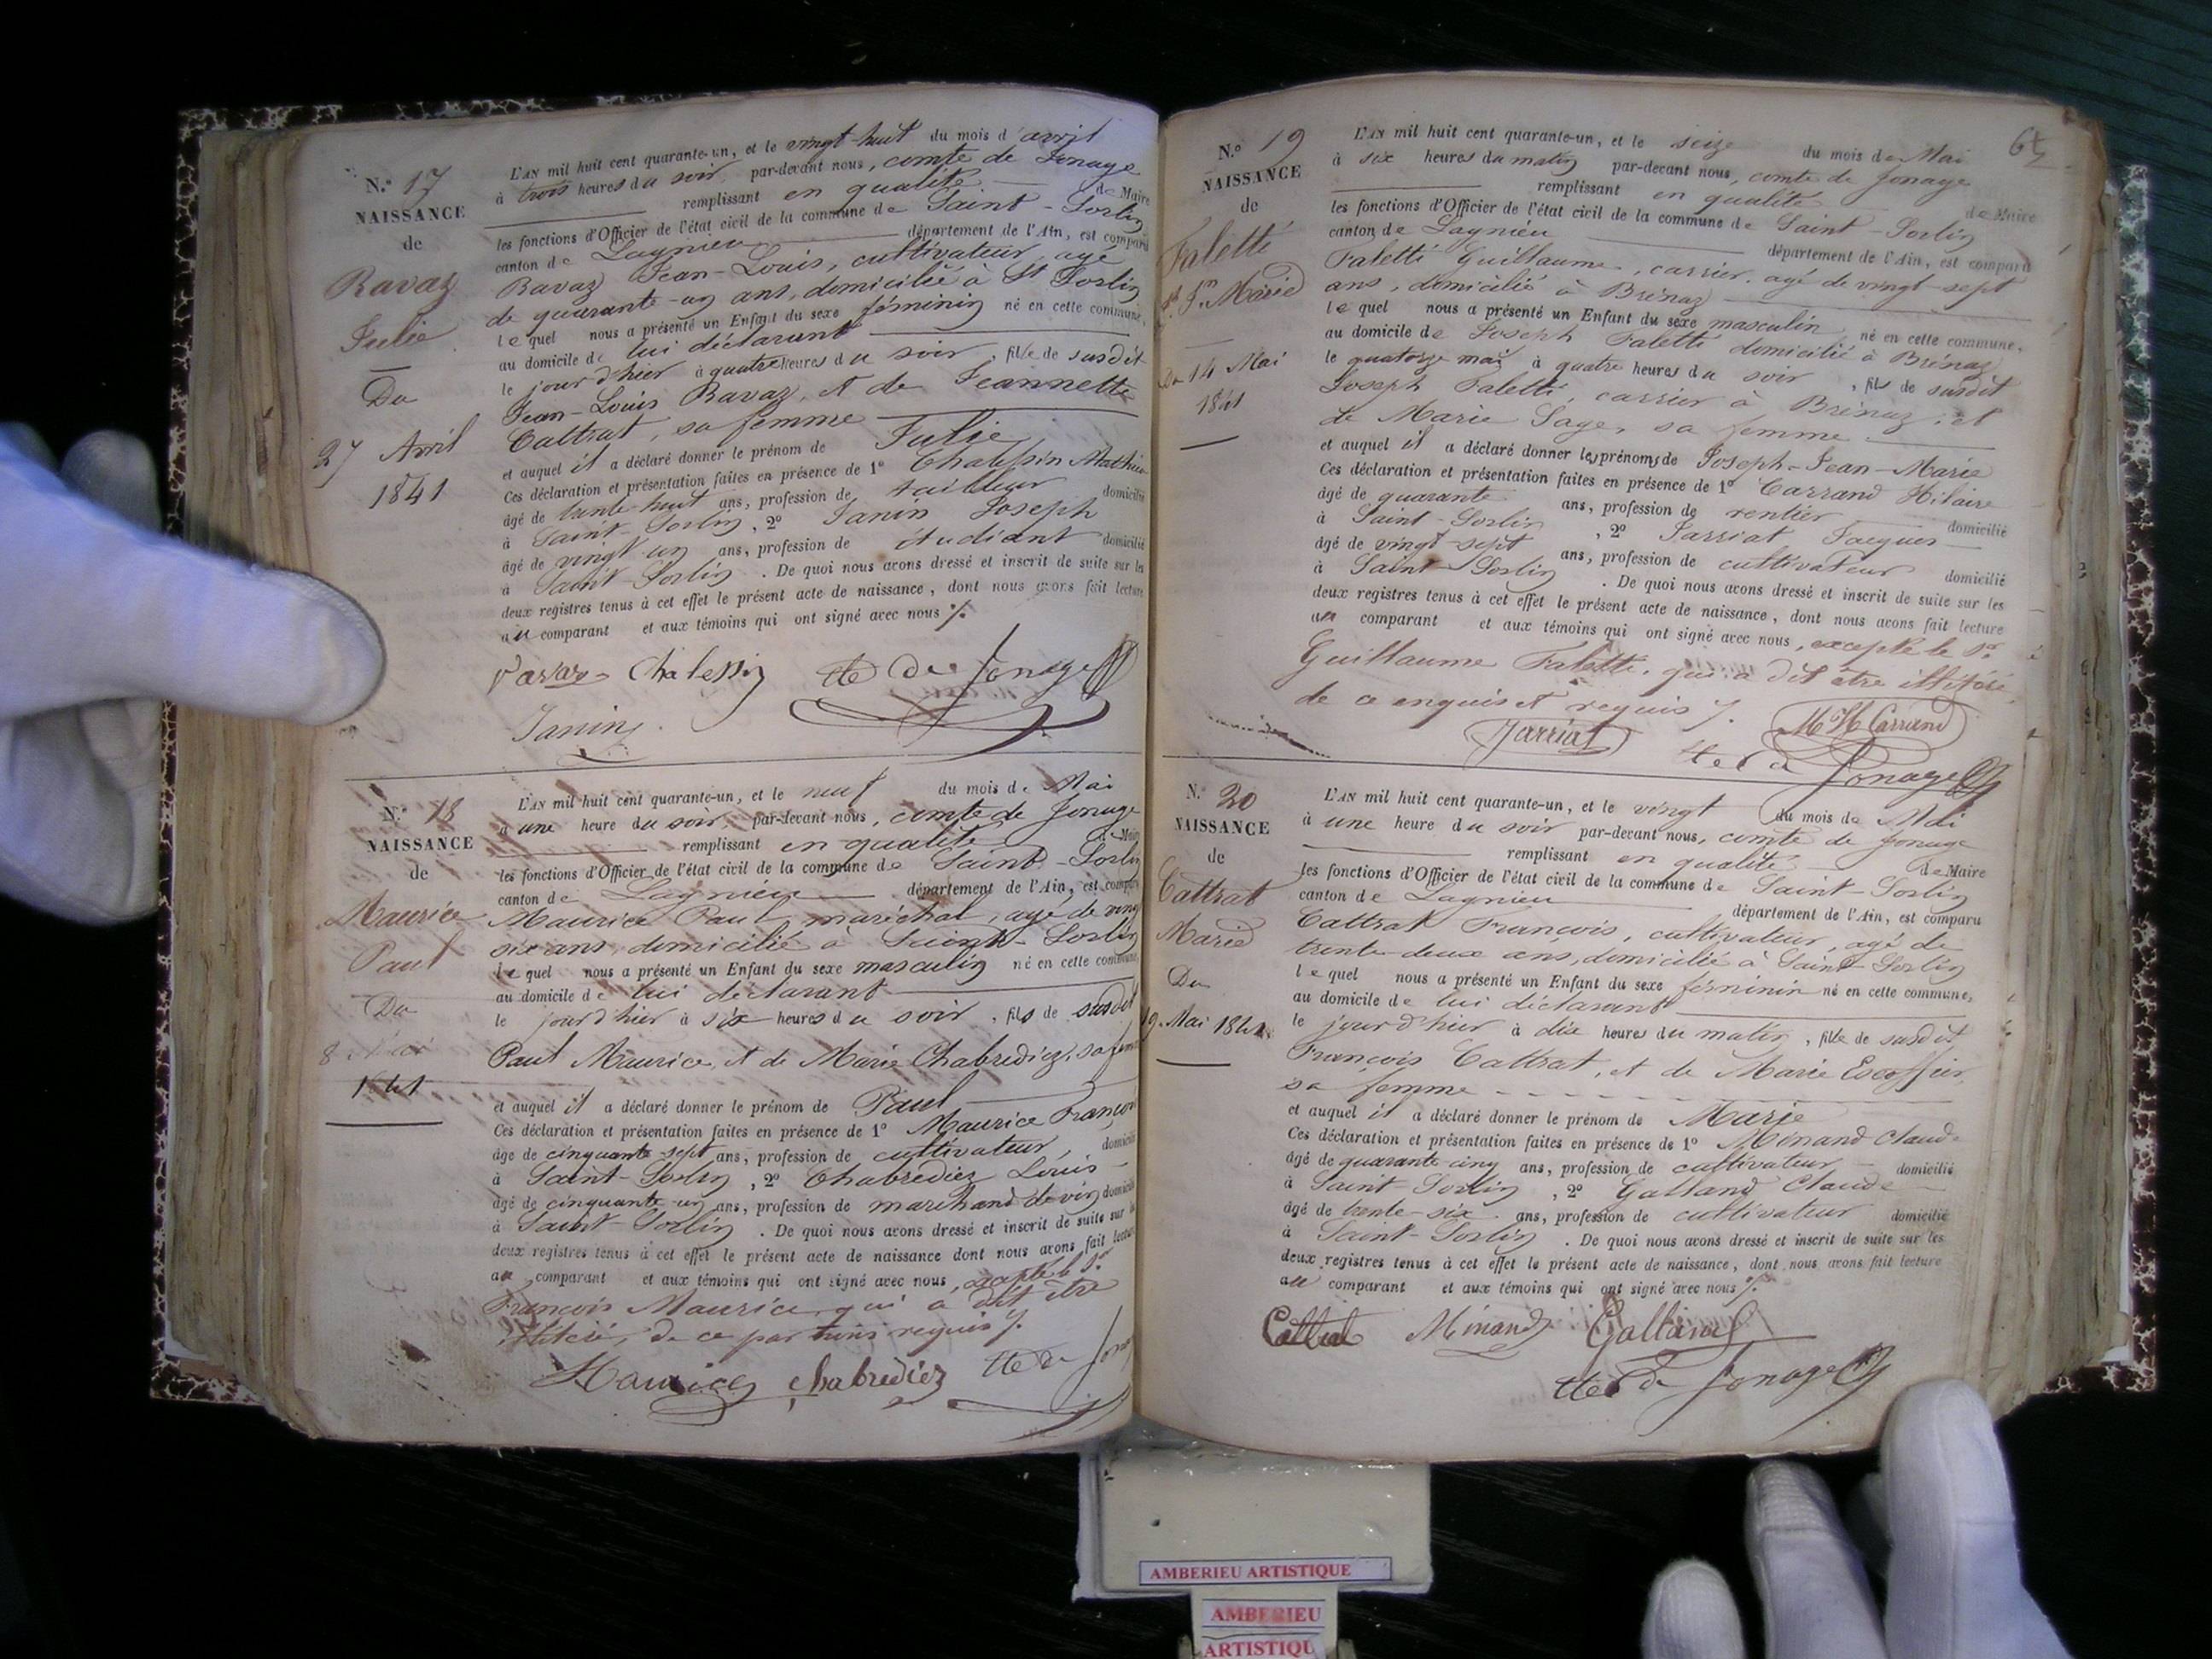 N.° 17
NAISSANCE
de
Ravaz
Julie
Du
27 Avril
1841
L'AN mil huit cent quarante-un, et le vingt-huit du mois d'avril
à trois heures du soir, par-devant nous, comte de Jonage
remplissant en qualité de Maire
les fonctions d'Officier de l'état civil de la commune de Saint-Sorlin
canton de Lagnieu département de l'Ain, est comparu
Ravaz Jean-Louis, cultivateur, agé
de quarante-un ans, domicilié à St Sorlin
lequel nous a présenté un Enfant du sexe féminin né en cette commune,
au domicile de lui déclarant
le jour d'hier à quatre heures du soir, fille de susdit
Jean-Louis Ravaz, et de Jeannette
Cattrat, sa femme
et auquel il a déclaré donner le prénom de Julie
Ces déclaration et présentation faites en présence de 1° Chalessin Mathieu
âgé de trente-huit ans, profession de tailleur domicilié
à Saint-Sorlin, 2° Janin Joseph
âgé de vingt un ans, profession de étudiant domicilié
à Saint-Sorlin. De quoi nous avons dressé et inscrit de suite sur les
deux registres tenus à cet effet le présent acte de naissance, dont nous avons fait lecture
au comparant et aux témoins qui ont signé avec nous %.
Ravaz Chalessin Cte de Jonage
Janin
N.° 18
NAISSANCE
de
Maurice
Paul
Du
8 Mai
1841
L'AN mil huit cent quarante-un, et le neuf du mois de Mai
à une heure du soir, par-devant nous, comte de Jonage
remplissant en qualité de Maire
les fonctions d'Officier de l'état civil de la commune de Saint-Sorlin
canton de Lagnieu département de l'Ain, est comparu
Maurice Paul, maréchal, agé de vingt
six ans, domicilié à Saint-Sorlin
lequel nous a présenté un Enfant du sexe masculin né en cette commune,
au domicile de lui déclarant
le jour d'hier à six heures du soir, fils de susdit
Paul Maurice, et de Marie Chabrediez, sa femme
et auquel il a déclaré donner le prénom de Paul
Ces déclaration et présentation faites en présence de 1° Maurice François
âgé de cinquante-sept ans, profession de cultivateur, domicilié
à Saint-Sorlin, 2° Chabrediez Louis
âgé de cinquante-un ans, profession de marchand de vin domicilié
à Saint-Sorlin. De quoi nous avons dressé et inscrit de suite sur les
deux registres tenus à cet effet le présent acte de naissance dont nous avons fait lecture
au comparant et aux témoins qui ont signé avec nous, excepté le Sr
François Maurice, qui a dit être
illitéré, de ce par nous requis %.
Maurice Chabrediez Cte de Jonage
62
N.° 19
NAISSANCE
de
Faletti
Jh Jn Marie
Du 14 Mai
1841
L'AN mil huit cent quarante-un, et le seize du mois de Mai
à six heures du matin par-devant nous, comte de Jonage
remplissant en qualité de Maire
les fonctions d'Officier de l'état civil de la commune de Saint-Sorlin
canton de Lagnieu département de l'Ain, est comparu
Faletti Guillaume, carrier, agé de vingt-sept
ans, domicilié à Brénaz
lequel nous a présenté un Enfant du sexe masculin né en cette commune,
au domicile de Joseph Faletti domicilié à Brénaz
le quatorze mai à quatre heures du soir, fils de susdit
Joseph Faletti, carrier à Brénaz, et
de Marie Sage, sa femme
et auquel il a déclaré donner les prénoms de Joseph-Jean-Marie
Ces déclaration et présentation faites en présence de 1° Carrand Hilaire
âgé de quarante ans, profession de rentier domicilié
à Saint-Sorlin, 2° Jarriat Jacques
âgé de vingt-sept ans, profession de cultivateur domicilié
à Saint-Sorlin. De quoi nous avons dressé et inscrit de suite sur les
deux registres tenus à cet effet le présent acte de naissance, dont nous avons fait lecture
au comparant et aux témoins qui ont signé avec nous, excepté le Sr
Guillaume Faletti, qui a dit être illitéré
de ce enquis et requis %.
Jarriat M H Carrand
Cte de Jonage
N.° 20
NAISSANCE
de
Cattrat
Marie
Du
19 Mai 1841
L'AN mil huit cent quarante-un, et le vingt du mois de Mai
à une heure du soir par-devant nous, comte de Jonage
remplissant en qualité de Maire
les fonctions d'Officier de l'état civil de la commune de Saint-Sorlin
canton de Lagnieu département de l'Ain, est comparu
Cattrat François, cultivateur, agé de
trente-deux ans, domicilié à Saint-Sorlin
lequel nous a présenté un Enfant du sexe féminin né en cette commune,
au domicile de lui déclarant
le jour d'hier à dix heures du matin, fille de susdit
François Cattrat, et de Marie Escoffier,
sa femme
et auquel il a déclaré donner le prénom de Marie
Ces déclaration et présentation faites en présence de 1° Minand Claude
âgé de quarante-cinq ans, profession de cultivateur domicilié
à Saint-Sorlin, 2° Galland Claude
âgé de trente-six ans, profession de cultivateur domicilié
à Saint-Sorlin. De quoi nous avons dressé et inscrit de suite sur les
deux registres tenus à cet effet le présent acte de naissance, dont nous avons fait lecture
au comparant et aux témoins qui ont signé avec nous %.
Cattrat Minand Galland
Cte de Jonage
AMBERIEU ARTISTIQUE
AMBERIEU
ARTISTIQU